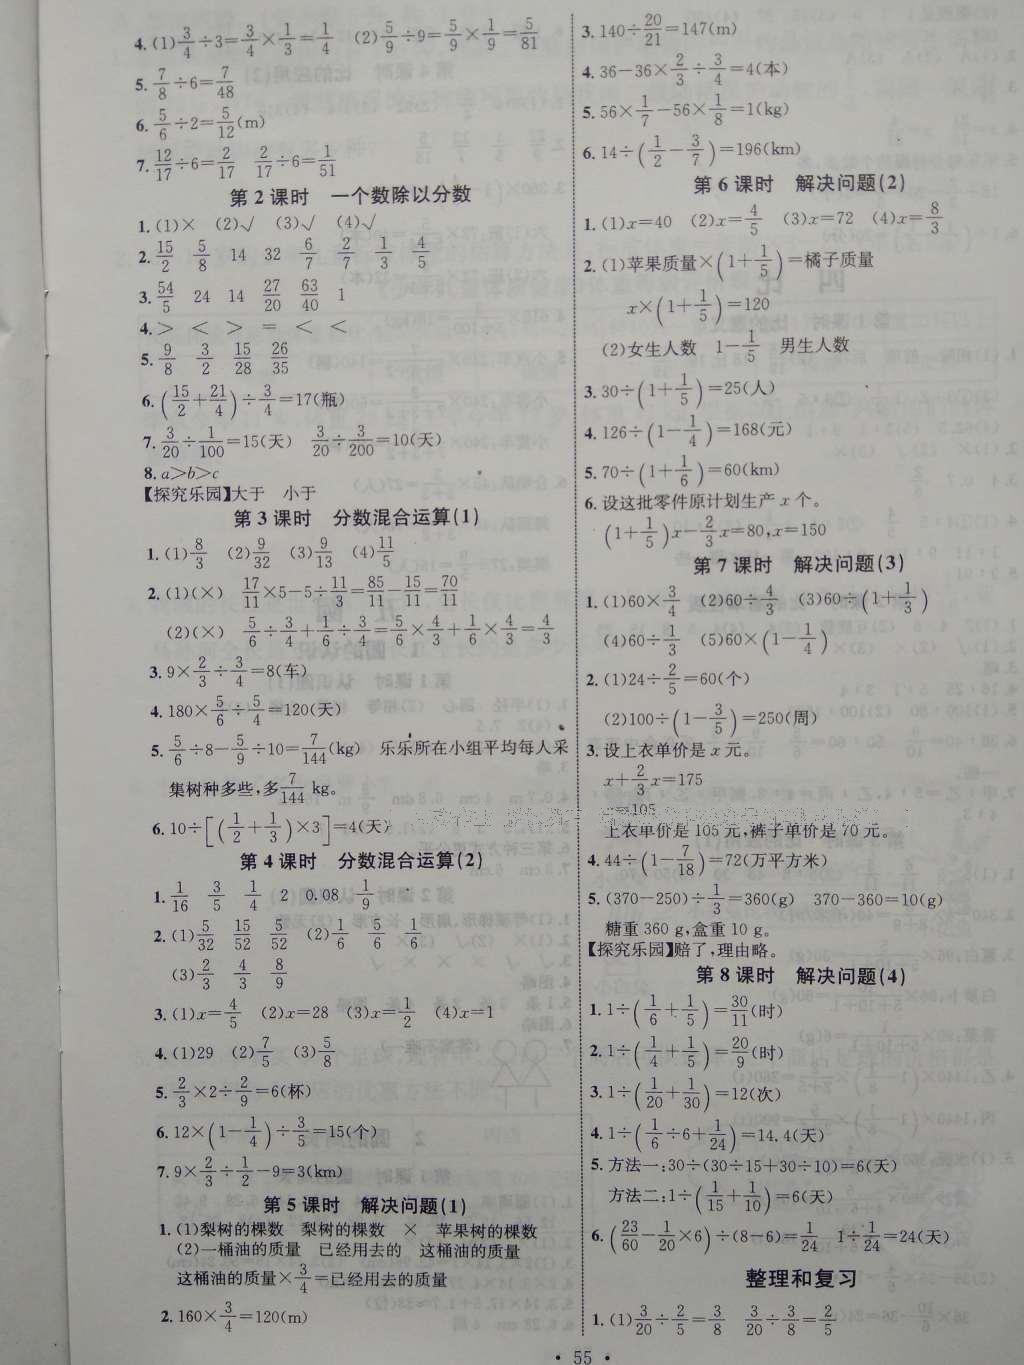 4.(1)3/4÷3=3/4×1/3=1/4 (2)5/9÷9=5/9×1/9=5/81
5. 7/8÷6=7/48
6. 5/6÷2=5/12(m)
7. 12/17÷6=2/17 2/17÷6=1/51
第2课时 一个数除以分数
1.(1)× (2)√ (3)√ (4)√
2. 15/2 5/8 14 32 6/7 2/7 1/3 4/5
3. 54/5 24 14 27/20 63/40 1
4.> < > = < <
5. 9/8 3/2 15/28 26/35
6.(15/2+21/4)÷3/4=17(瓶)
7. 3/20÷1/100=15(天) 3/20÷3/200=10(天)
8. a>b>c
【探究乐园】大于 小于
第3课时 分数混合运算(1)
1.(1)8/3 (2)9/32 (3)9/13 (4)11/5
2.(1)(×) 17/11×5-5÷11/3=85/11-15/11=70/11
(2)(×) 5/6÷3/4+1/6÷3/4=5/6×4/3+1/6×4/3=4/3
3. 9×2/3÷3/4=8(车)
4. 180×5/6÷5/4=120(天)
5. 5/6÷8-5/9÷10=7/144(kg) 乐乐所在小组平均每人采
集树种多些,多7/144 kg。
6. 10÷[(1/2+1/3)×3]=4(天)
第4课时 分数混合运算(2)
1. 1/16 3/5 1/4 2 0.08 1/9
2.(1)5/32 15/52 5/52 (2)1/6 5/6 1/6
(3)2/3 4/3 8/9
3.(1)x=4/5 (2)x=28 (3)x=1/2 (4)x=1
4.(1)29 (2)7/5 (3)5/8
5. 2/3×2÷2/9=6(杯)
6. 12×(1-1/4)÷3/5=15(个)
7. 9×2/3÷1/2-9=3(km)
第5课时 解决问题(1)
1.(1)梨树的棵数 梨树的棵数 × 苹果树的棵数
(2)一桶油的质量 已经用去的 这桶油的质量
这桶油的质量×3/4=已经用去的质量
2. 160×3/4=120(m)
3. 140÷20/21=147(m)
4. 36-36×2/3÷3/4=4(本)
5. 56×1/7-56×1/8=1(kg)
6. 14÷(1/2-3/7)=196(km)
第6课时 解决问题(2)
1.(1)x=40 (2)x=4/5 (3)x=72 (4)x=8/3
2.(1)苹果质量×(1+1/5)=橘子质量
x×(1+1/5)=120
(2)女生人数 1-1/5 男生人数
3. 30÷(1+1/5)=25(人)
4. 126÷(1-1/4)=168(元)
5. 70÷(1+1/6)=60(km)
6. 设这批零件原计划生产 x 个。
(1+1/5)x-2/3x=80,x=150
第7课时 解决问题(3)
1.(1)60×3/4 (2)60÷4/3 (3)60÷(1+1/3)
(4)60÷1/3 (5)60×(1-1/4)
2.(1)24÷2/5=60(个)
(2)100÷(1-3/5)=250(周)
3. 设上衣单价是 x 元。
x+2/3x=175
x=105
上衣单价是105元,裤子单价是70元。
4. 44÷(1-7/18)=72(万平方米)
5.(370-250)÷1/3=360(g) 370-360=10(g)
糖重360 g,盒重10 g。
【探究乐园】赔了,理由略。
第8课时 解决问题(4)
1. 1÷(1/6+1/5)=30/11(时)
2. 1÷(1/4+1/5)=20/9(时)
3. 1÷(1/20+1/30)=12(次)
4. 1÷(1/6÷6+1/24)=14.4(天)
5. 方法一:30÷(30÷15+30÷10)=6(天)
方法二:1÷(1/15+1/10)=6(天)
6.(23/60-1/20×6)÷(8-6)=1/24 1÷1/24=24(天)
整理和复习
1.(1)3/20÷2/5=3/8 3/20÷3/8=2/5
• 55 •